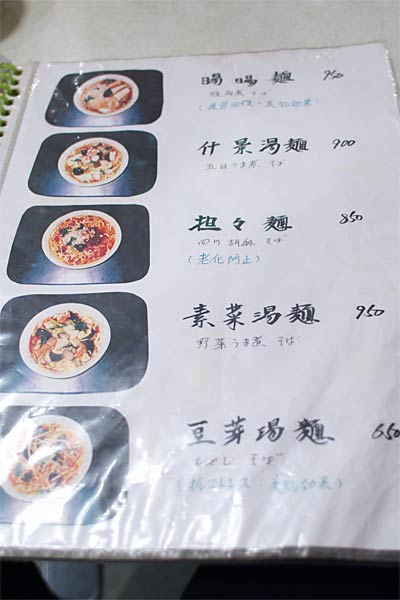 腸腸麺 950
豚角煮 そば
(疲労回復・美肌効果)
什景湯麺 900
五目うま煮 そば
担々麺 850
四川 胡麻 そば
(老化阻止)
素菜湯麺 950
野菜うま煮 そば
豆芽湯麺 650
もやし そば
(抗ストレス・美肌効果)